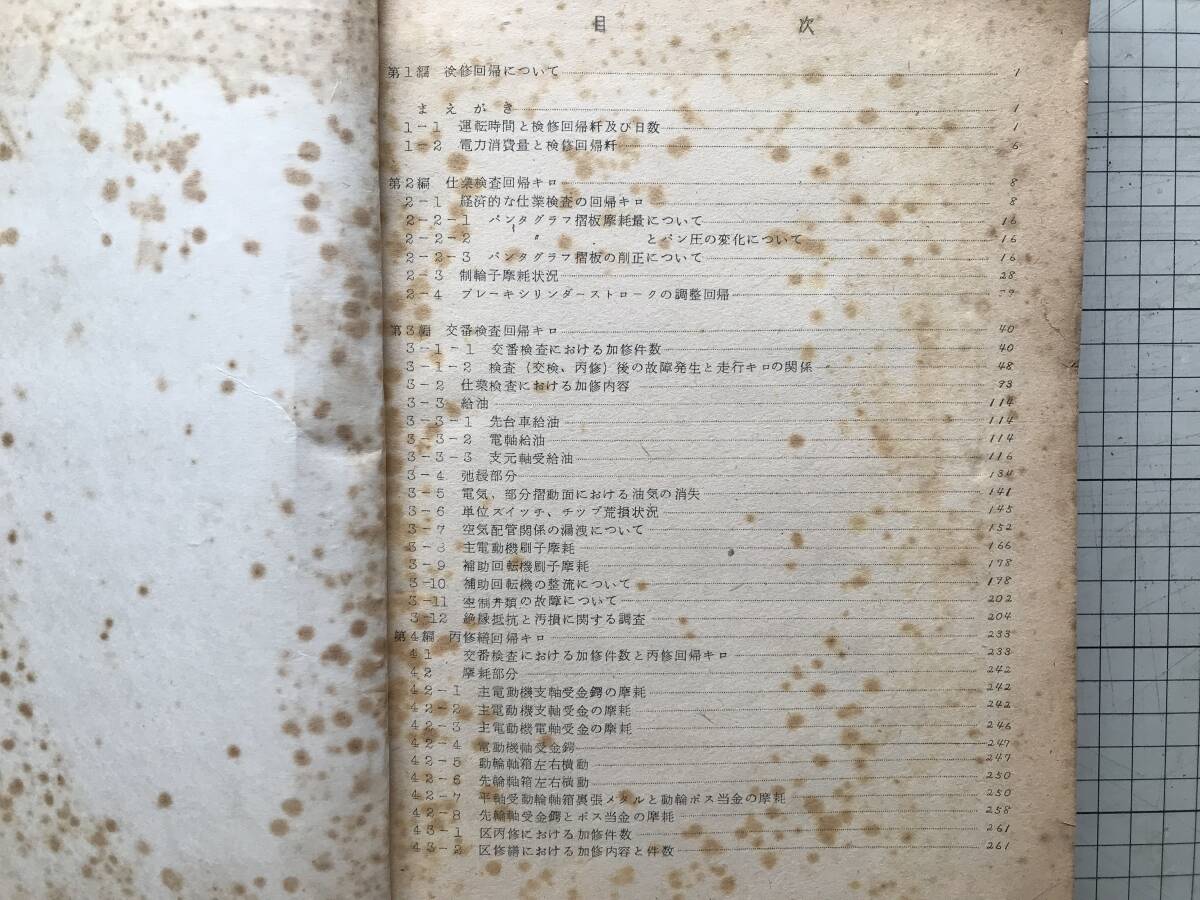 目次
第1編 検修回帰について 1
まえがき 1
1-1 運転時間と検修回帰粁及び日数 1
1-2 電力消費量と検修回帰粁 6
第2編 仕業検査回帰キロ 8
2-1 経済的な仕業検査の回帰キロ 8
2-2-1 パンタグラフ摺板摩耗量について 16
2-2-2 〃 とパン圧の変化について 16
2-2-3 パンタグラフ摺板の削正について 16
2-3 制輪子摩耗状況 28
2-4 ブレーキシリンダーストロークの調整回帰 39
第3編 交番検査回帰キロ 40
3-1-1 交番検査における加修件数 40
3-1-2 検査(交検、丙修)後の故障発生と走行キロの関係 48
3-2 仕業検査における加修内容 93
3-3 給油 114
3-3-1 先台車給油 114
3-3-2 電軸給油 114
3-3-3 支元軸受給油 116
3-4 弛緩部分 134
3-5 電気、部分摺動面における油気の消失 141
3-6 単位スイッチ、チップ荒損状況 145
3-7 空気配管関係の漏洩について 152
3-8 主電動機刷子摩耗 166
3-9 補助回転機刷子摩耗 178
3-10 補助回転機の整流について 198
3-11 空制弁類の故障について 202
3-12 絶縁抵抗と汚損に関する調査 204
第4編 丙修繕回帰キロ 233
41 交番検査における加修件数と丙修回帰キロ 233
42 摩耗部分 242
42-1 主電動機支軸受金鍔の摩耗 242
42-2 主電動機支軸受金の摩耗 242
42-3 主電動機電軸受金の摩耗 246
42-4 電動機軸受金鍔 247
42-5 動輪軸箱左右横動 247
42-6 先輪軸箱左右横動 250
42-7 平軸受動輪軸箱裏張メタルと動輪ボス当金の摩耗 250
42-8 先輪軸受金鍔とボス当金の摩耗 258
43-1 区丙修における加修件数 261
43-2 区修繕における加修内容と件数 261